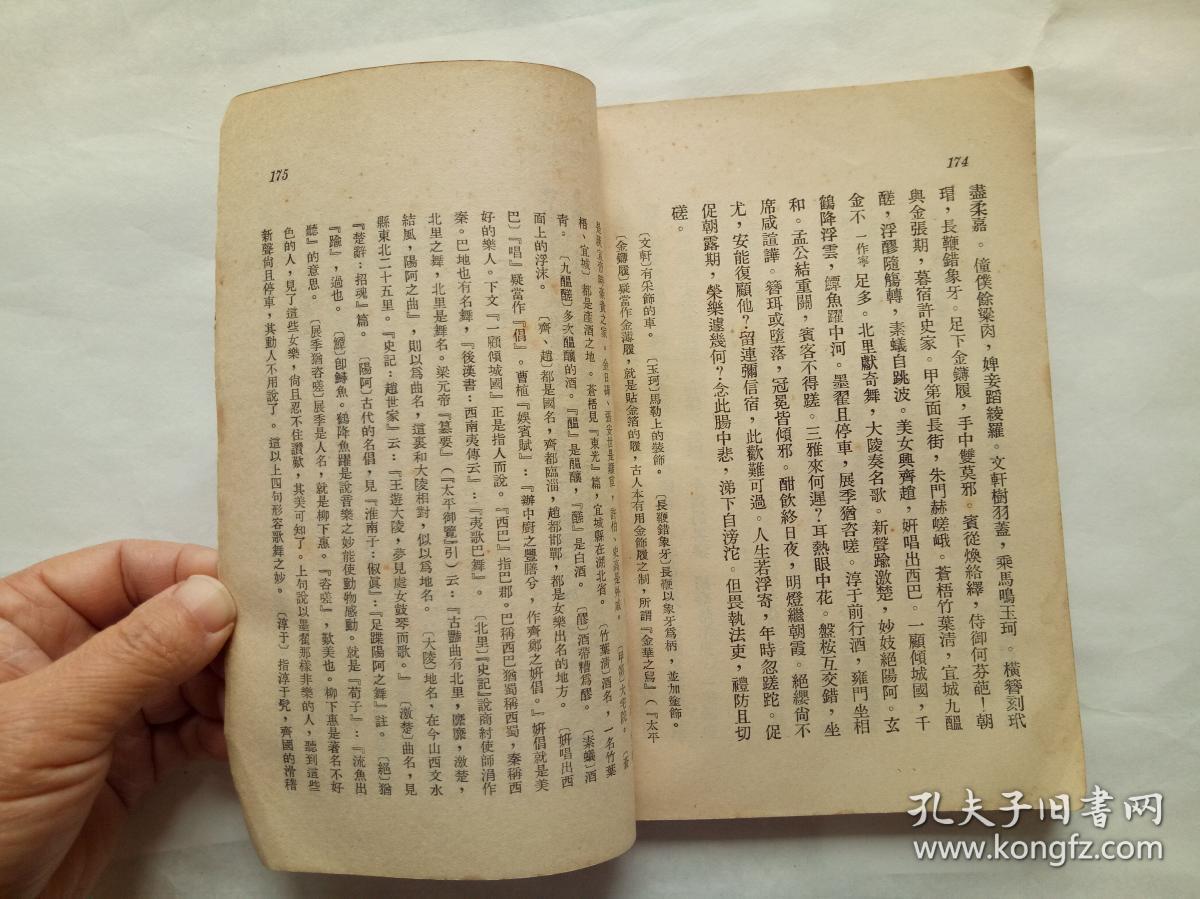 174
盡柔嘉。僮僕餘粱肉，婢妾蹈綾羅。文軒樹羽蓋，乘馬鳴玉珂。橫簪刻玳
瑁，長鞭錯象牙。足下金鑮履，手中雙莫邪。賓從煥絡繹，侍御何芬葩！朝
與金張期，暮宿許史家。甲第面長街，朱門赫嵯峨。蒼梧竹葉清，宜城九醞
醝，浮醪隨觴轉，素蟻自跳波。美女興齊趙，妍唱出西巴。一顧傾城國，千
金不一作寧足多。北里獻奇舞，大陵奏名歌。新聲踰激楚，妙妓絕陽阿。玄
鶴降浮雲，鱏魚躍中河。墨翟且停車，展季猶咨嗟。淳于前行酒，雍門坐相
和。孟公結重關，賓客不得蹉。三雅來何遲？耳熱眼中花。盤桉互交錯，坐
席咸諠譁。簪珥或墮落，冠冕皆傾邪。酣飲終日夜，明燈繼朝霞。絕纓尙不
尤，安能復顧他？留連彌信宿，此歡難可過。人生若浮寄，年時忽蹉跎。促
促朝露期，榮樂遽幾何？念此腸中悲，涕下自滂沱。但畏執法吏，禮防且切
磋。
〔文軒〕有采飾的車。　〔玉珂〕馬勒上的裝飾。　〔長鞭錯象牙〕長鞭以象牙爲柄，並加塗飾。
〔金鑮履〕疑當作金薄履，就是貼金箔的履，古人本有用金飾履之制，所謂『金華之舄』（『太平
175
梧、宜城〕都是產酒之地。蒼梧見『東光』篇，宜城縣在湖北省。　〔竹葉清〕酒名，一名竹葉
靑。　〔九醞醝〕多次醞釀的酒。『醞』是醞釀，『醝』是白酒。　〔醪〕酒帶糟爲醪。　〔素蟻〕酒
面上的浮沫。　〔齊、趙〕都是國名，齊都臨淄，趙都邯鄲，都是女樂出名的地方。　〔妍唱出西
巴〕『唱』疑當作『倡』。曹植『娛賓賦』：『辦中廚之豐膳兮，作齊鄭之妍倡。』妍倡就是美
好的樂人。下文『一顧傾城國』正是指人而說。『西巴』指巴郡。巴稱西巴猶蜀稱西蜀，秦稱西
秦。巴地也有名舞，『後漢書：西南夷傳云』：『夷歌巴舞』。　〔北里〕『史記』說商紂使師涓作
北里之舞，北里是舞名。梁元帝『纂要』（『太平御覽』引）云：『古豔曲有北里，靡靡，激楚，
結風，陽阿之曲』，則以爲曲名，這裏和大陵相對，似以爲地名。　〔大陵〕地名，在今山西文水
縣東北二十五里。『史記：趙世家』云：『王遊大陵，夢見處女鼓琴而歌。』　〔激楚〕曲名，見
『楚辭：招魂』篇。　〔陽阿〕古代的名倡，見『淮南子：俶眞』：『足蹀陽阿之舞』註。　〔絕〕猶
『踰』，過也。　〔鱏〕卽鱘魚。鶴降魚躍是說音樂之妙能使動物感動。就是『荀子』：『流魚出
聽』的意思。　〔展季猶咨嗟〕展季是人名，就是柳下惠。『咨嗟』，歎美也。柳下惠是著名不好
色的人，見了這些女樂，尙且忍不住讚歎，其美可知了。上句說以墨翟那樣非樂的人，聽到這些
新聲尙且停車，其動人不用說了。這以上四句形容歌舞之妙。　〔淳于〕指淳于髡，齊國的滑稽
孔夫子旧书网
www.kongfz.com